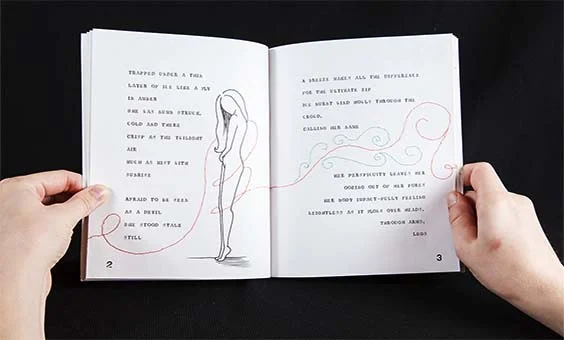 TRAPPED UNDER A THIN
LAYER OF ICE LIKE A FLY
IN AMBER
SHE WAS STRUCK,
COLD AND THERE
CRISP AS THE TWILIGHT
AIR
MUCH AS MIST WITH
SUNRISE
AFRAID TO BE SEEN
AS A DEVIL
SHE STOOD STALK
STILL
2
A BREEZE MAKES ALL THE DIFFERENCE
FOR THE ULTIMATE
ICE BURST WIND HOWLS THROUGH THE
CROWD,
CALLING HER NAME
HER PERSPICUITY LEAVES HER
OOZING OUT OF HER PORES
HER BODY IMPACT-FULLY FEELING
WEIGHTLESS AS IT FLOWS OVER HEADS,
THROUGH ARMS,
LEGS
3